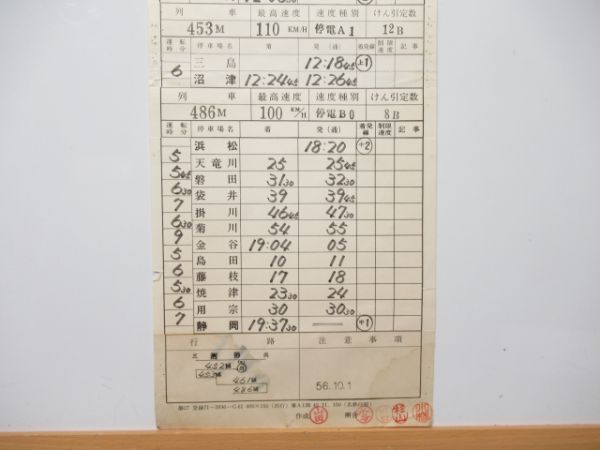 列車 最高速度 速度種別 けん引定数
453M 110 KM/H 停電A1 12B
運転時分 停車場名 着 発(通) 着発線 制限速度 記事
三島 12:18 45 上1
6 沼津 12:24 45 12:26 45
列車 最高速度 速度種別 けん引定数
486M 100 KM/H 停電B0 8B
運転時分 停車場名 着 発(通) 着発線 制限速度 記事
浜松 18:20 中2
5 天竜川 25 25 45
5 45 磐田 31 30 32 30
6 30 袋井 39 39 45
7 掛川 46 45 47 30
6 30 菊川 54 55
9 金谷 19:04 05
5 島田 10 11
6 藤枝 17 18
5 30 焼津 23 30 24
6 用宗 30 30 30
7 静岡 19:37 30 — 中1
行路 注意事項
452M
453M
461M
486M
56.10.1
作成